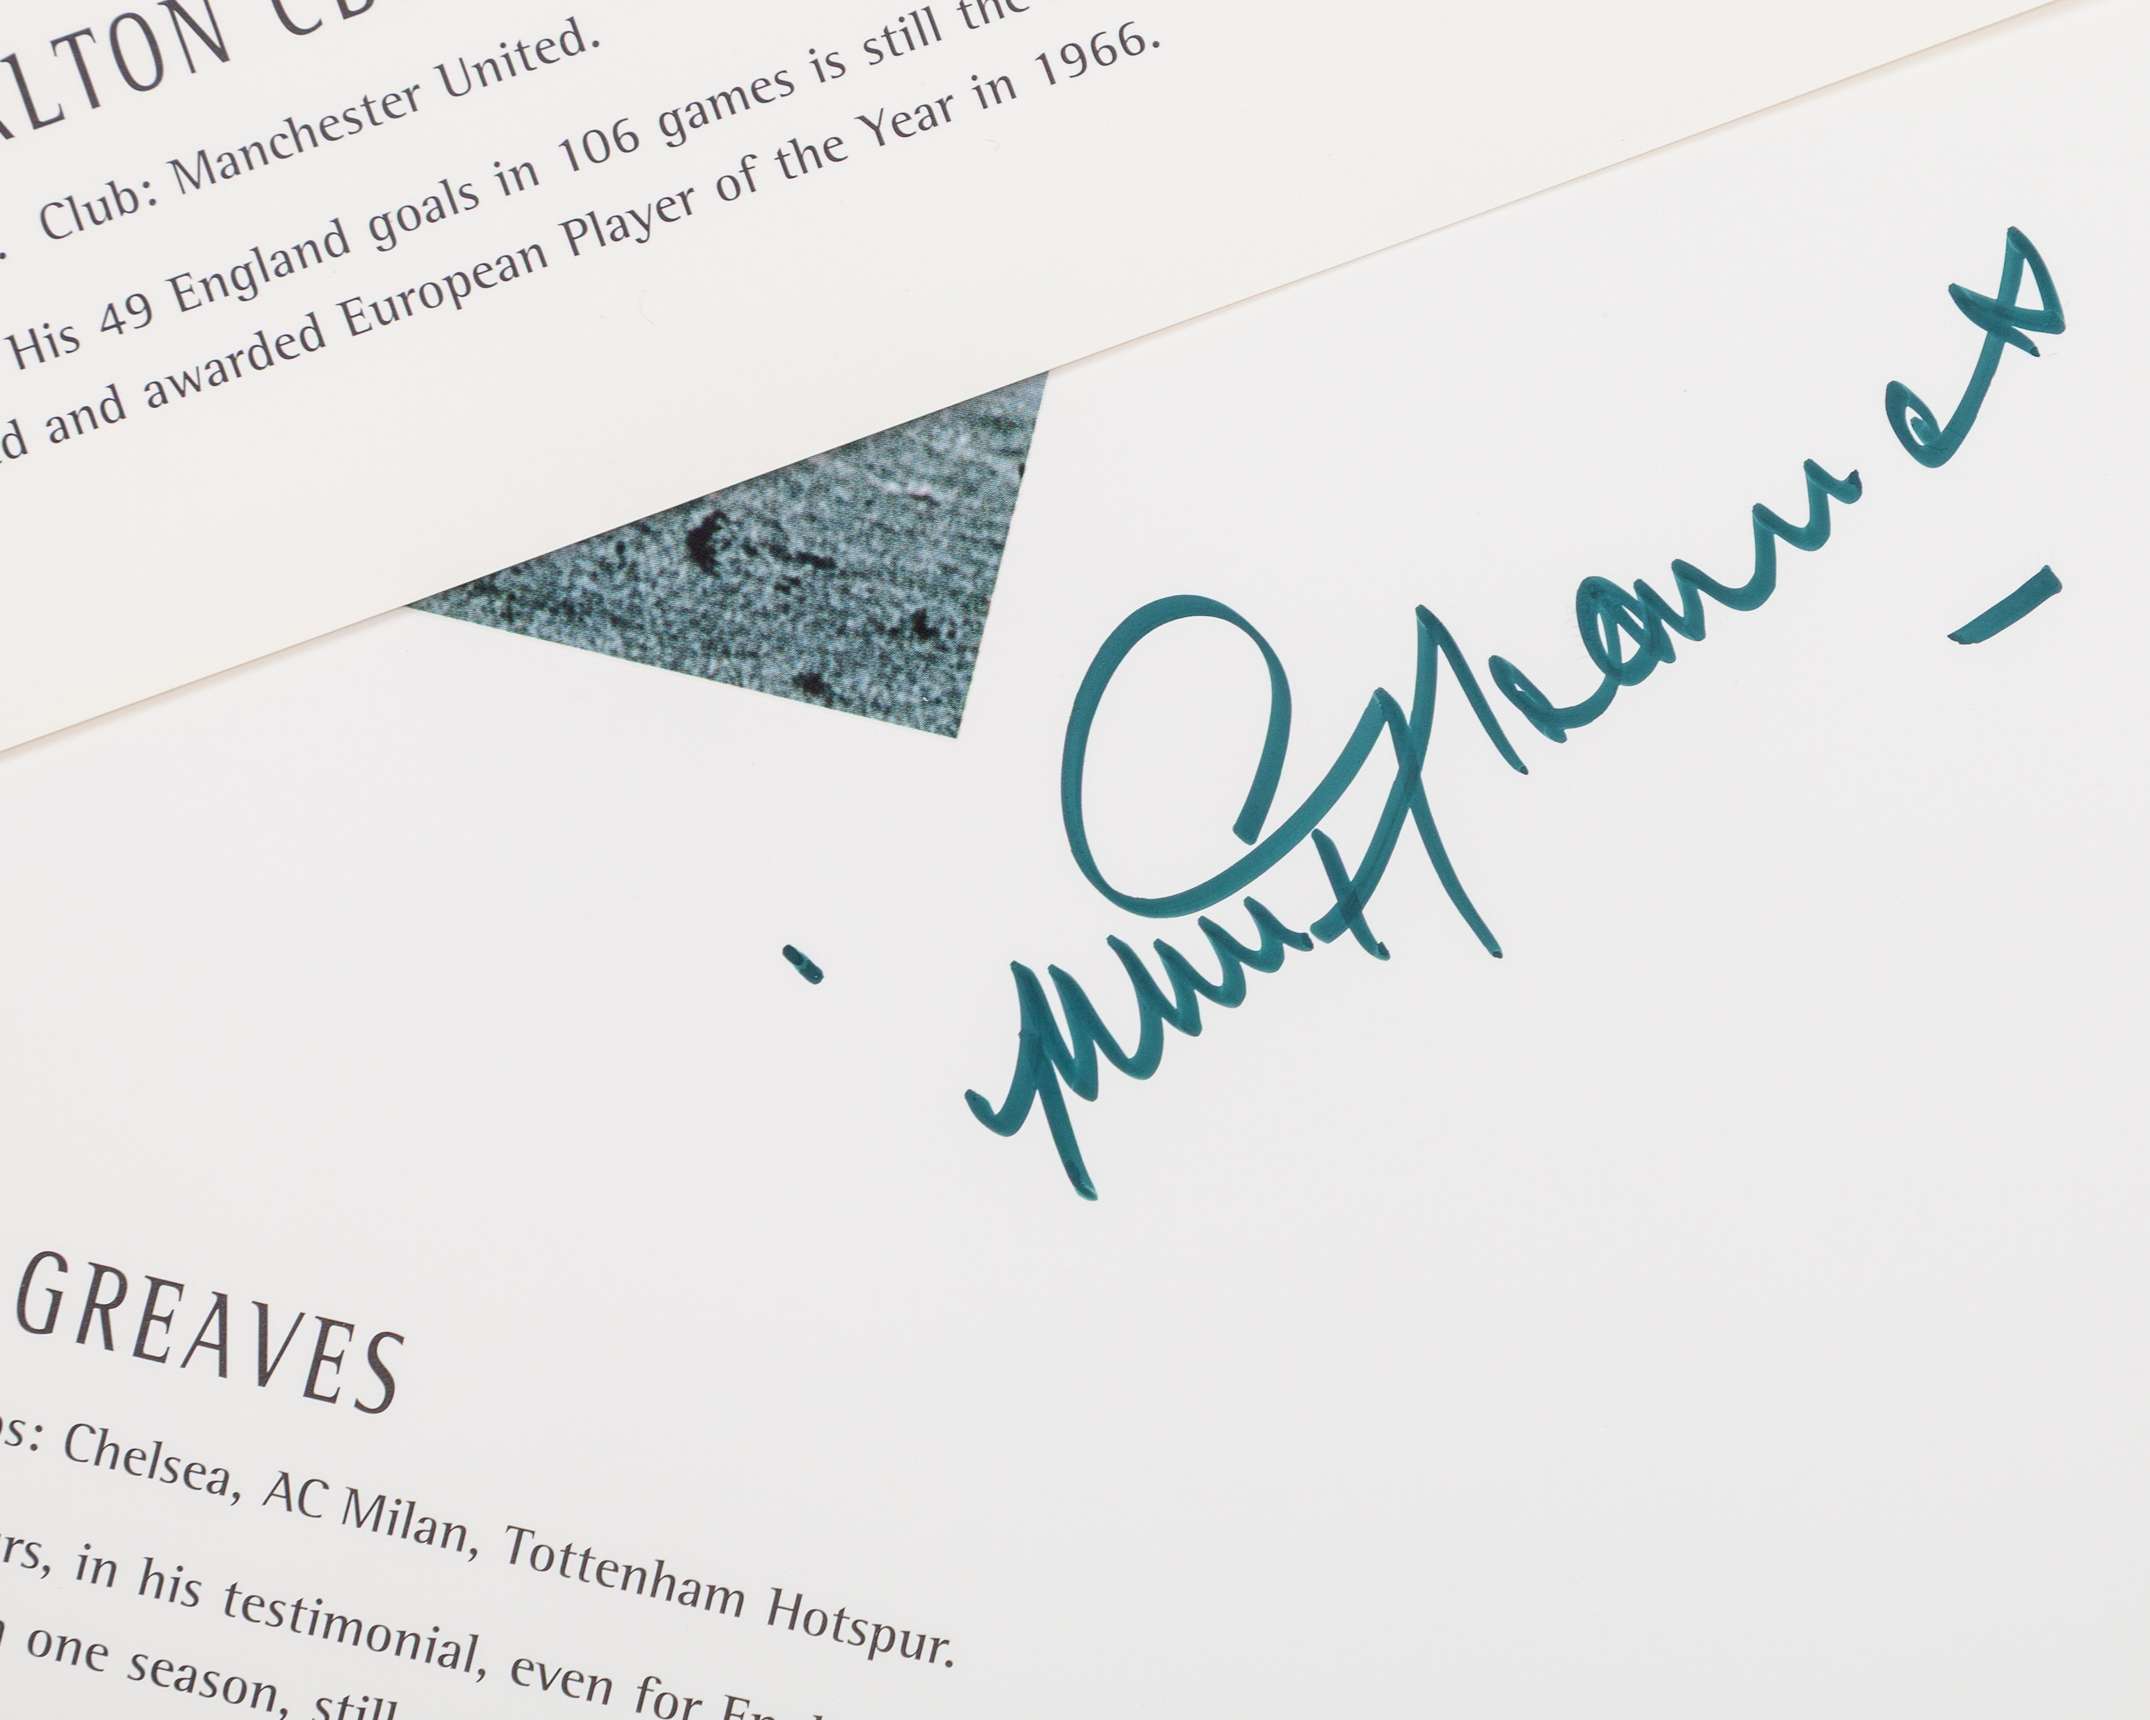 ALTON CB
. Club: Manchester United.
His 49 England goals in 106 games is still the
d and awarded European Player of the Year in 1966.
Jimmy Greaves
GREAVES
s: Chelsea, AC Milan, Tottenham Hotspur.
rs, in his testimonial, even for Engl
one season, still